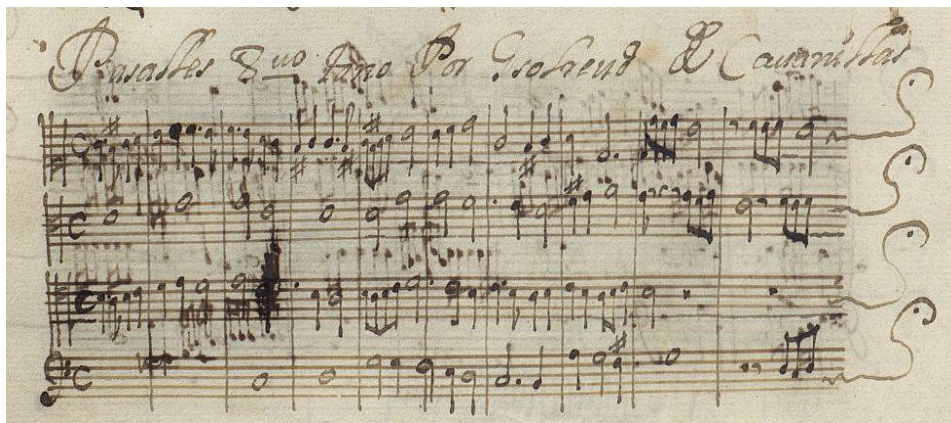 Pasalles 8uno tono Por Gsolreud de Cauanillas